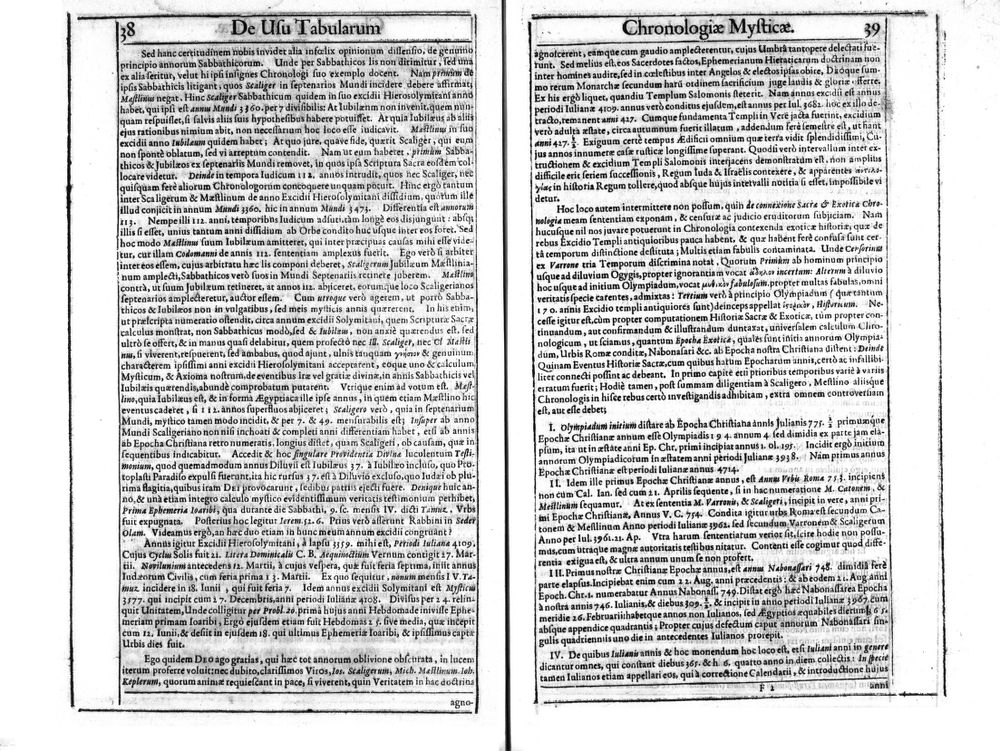 38
De Usu Tabularum
Sed hanc certitudinem nobis invidet alia infœlix opinionum dissensio, de genuino
principio annorum Sabbathicorum. Unde per Sabbathicos lis non dirimitur, sed una
ex alia seritur, velut hi ipsi insignes Chronologi suo exemplo docent. Nam primùm de
ipsis Sabbathicis litigant, quos Scaliger in septenarios Mundi incidere debere affirmat;
Mæstlinus negat. Hinc Scaliger Sabbathicum quidem in suo excidii Hierosolymitani anno
habet, qui ipsi est annus Mundi 3360. per 7 divisibilis: At Iubilæum non invenit, quem nun-
quam respuisset, si salvis aliis suis hypothesibus habere potuisset. At quia Iubilæus ab aliis
ejus rationibus nimium abit, non necessarium hoc loco esse judicavit. Mæstlinus in suo
excidii anno Iubilæum quidem habet; At quo jure, quave fide, quærit Scaliger, qui eum
non spontè oblatum, sed vi arreptum contendit. Nam ut eum haberet, primùm Sabba-
thicos & Iubilæos ex septenariis Mundi removet, in quos ipsa Scriptura Sacra eosdem col-
locare videtur. Deinde in tempora Iudicum 112. annos intrudit, quos nec Scaliger, nec
quisquam ferè aliorum Chronologorum concoquere unquam potuit. Hinc ergò tantum
inter Scaligerum & Mæstlinum de anno Excidii Hierosolymitani dissidium, quorum ille
illud conjicit in annum Mundi 3360, hic in annum Mundi 3473. Differentia est annorum
113. Nempe illi 112. anni, temporibus Iudicum adsuti, tam longè eos disjungunt: absq;
illis si esset, unius tantum anni dissidium ab Orbe condito huc usque inter eos foret. Sed
hoc modo Mæstlinus suum Iubilæum amitteret, qui inter præcipuas causas mihi esse vide-
tur, cur illam Codomanni de annis 112. sententiam amplexus fuerit. Ego verò si arbiter
inter eos essem, cujus arbitratu hæc lis componi deberet, Scaligerum Iubilæum Mæstlinia-
num amplecti, Sabbathicos verò suos in Mundi Septenariis retinere juberem. Mæstlino
contrà, ut suum Jubilæum retineret, at annos 112. abjiceret, eorumque loco Scaligerianos
septenarios amplecteretur, auctor essem. Cum utroque verò agerem, ut porrò Sabba-
thicos & Iubilæos non in vulgaribus, sed meis mysticis annis quærerent. In his enim,
ut præscripta numeratio ostendit, circa annum excidii Solymitani, quem Scripturæ Sacræ
calculus monstrat, non Sabbathicus modò, sed & Iubilæus, non anxiè quærendus est, sed
ultrò se offert, & in manus quasi delabitur, quem profectò nec ill. Scaliger, nec Cl Mæstli
nus, si viverent, respuerent, sed ambabus, quod ajunt, ulnis tanquam γνήσιον & genuinum
characterem ipsissimi anni excidii Hierosolymitani acceptarent, eoque uno & calculum,
Mysticum, & Axioma nostrum, de eventibus iræ vel gratiæ divinæ, in annis Sabbathicis vel
Iubilæis quærendis, abundè comprobatum putarent. Utrique enim ad votum est. Mæst-
lino, quia Iubilæus est, & in forma Ægyptiaca ille ipse annus, in quem etiam Mæstlino hic
eventus caderet, si 112. annos superfluos abjiceret; Scaligero verò, quia in septenarium
Mundi, mystico tamen modo incidit, & per 7. & 49. mensurabilis est; Insuper ab anno
Mundi Scaligeriano non nisi inchoati & completi anni differentiam habet, etsi ab annis
ab Epocha Christiana retro numeratis, longius distet, quam Scaligeri, ob causam, quæ in
sequentibus indicabitur. Accedit & hoc singulare Providentiæ Divinæ luculentum Testi-
monium, quod quemadmodum annus Diluvii est Iubilæus 37. à Iubilæo incluso, quo Pro-
toplasti Paradiso expulsi fuerunt, ita hic rursus 37. est à Diluvio excluso, quo Iudæi ob plu-
rima flagitia, quibus iram DEI provocarunt, sedibus patriis ejecti fuere. Denique huic an-
no, & unà etiam integro calculo mystico evidentissimum veritatis testimonium perhibet,
Prima Ephemeria Ioaribi, qua durante die Sabbathi, 9. sc. mensis IV. dicti Tamuz, Vrbs
fuit expugnata. Posterius hoc legitur Ierem. 52. 6. Prius verò asserunt Rabbini in Seder
Olam. Videamus ergò, an hæc duo etiam in hunc meum annum excidii congruant?
Annus igitur Excidii Hierosolymitani, à lapsu 3559. mihi est, Periodi Iulianæ 4109.
Cujus Cyclus Solis fuit 21. Litera Dominicalis C. B. Æquinoctium Vernum contigit 27. Mar-
tii. Novilunium antecedens 12. Martii, à cujus vespera, quæ fuit feria septima, initit annus
Iudæorum Civilis, cum feria prima 13. Martii. Ex quo sequitur, nonum mensis IV. Ta-
muz incidere in 18. Iunii, qui fuit feria 7. Idem annus excidii Solymitani est Mysticus
3577. qui incipit cum 27. Decembris, anni periodi Iulianæ 4108. Divisus per 24. relin-
quit Unitatem, Unde colligitur per Probl. 20. prima hujus anni Hebdomade inivisse Ephe-
meriam primam Ioaribi, Ergò ejusdem etiam fuit Hebdomas 25. sive media, quæ incepit
cum 12. Iunii, & desiit in ejusdem 18. qui ultimus Ephemeriæ Ioaribi, & ipsissimus captæ
Urbis dies fuit.
Ego quidem DEO ago gratias, qui hæc tot annorum oblivione obscurata, in lucem
iterum proferre voluit; nec dubito, clarissimos Viros, Ios. Scaligerum, Mich. Mæstlinum, Ioh.
Keplerum, quorum animæ requiescant in pace, si viverent, quin Veritatem in hac doctrina
agno-
Chronologiæ Mysticæ.
39
agnoscerent, eamque cum gaudio amplecterentur, cujus Umbrâ tantopere delectati fue-
runt. Sed melius est, eos Sacerdotes factos, Ephemeriarum Hieraticarum doctrinam non
inter homines audire, sed in cœlestibus inter Angelos & electos ipsas obire, Deóque sum-
mo rerum Monarchæ secundum hanc ordinem sacrificium juge laudis & gloriæ offerre.
Ex his ergò liquet, quandiu Templum Salomonis steterit. Nam annus excidii est annus
periodi Iulianæ 4109. annus verò conditus ejusdem, est annus per Iul. 3682. hoc ex illo de-
tracto, remanent anni 427. Cumque fundamenta Templi in Vere jacta fuerint, excidium
verò adulta æstate, circa autumnum fuerit illatum, addendum ferè semestre est, ut fiant
anni 427. ½. Exiguum certè tempus Ædificii omnium quæ terra vidit splendidissimi, Cu-
jus annos innumeræ casæ rusticæ longissimè superant. Quodsi verò intervallum inter ex-
tructionem & excidium Templi Salomonis interjacens demonstratum est, non amplius
difficile erit seriem successionis, Regum Iuda & Israëlis contexere, & apparentes ἀντιλο-
γίας in historia Regum tollere, quod absque hujus intervalli notitia si esset, impossibile vi
detur.
Hoc loco autem intermittere non possum, quin de connexione Sacræ & Exoticæ Chro-
nologiæ meam sententiam exponam, & censuræ ac judicio eruditorum subjiciam. Nam
hucusque nil nos juvare potuerunt in Chronologia contexenda exoticæ historiæ, quæ de
rebus Excidio Templi antiquioribus pauca habent, & quæ habent ferè confusa sunt cer-
tâ temporum distinctione destituta; Multis etiam fabulis contaminata. Unde Censorinus
ex Varrone tria Temporum discrimina notat, Quorum Primùm ab hominum principio
usque ad diluvium Ogygis, propter ignorantiam vocat ἄδηλον incertum: Alterum à diluvio
hoc usque ad initium Olympiadum, vocat μυθικὸν fabulosum, propter multas fabulas, omni
veritatis specie carentes, admixtas: Tertium verò à principio Olympiadum (quæ tantum
170. annis Excidio templi antiquiores sunt) deinceps appellat ἱστορικὸν, Historicum. Ne-
cesse igitur est, cum propter computationem Historiæ Sacræ & Exoticæ, tùm propter con-
tinuandum, aut confirmandum & illustrandum duntaxat, universalem calculum Chro-
nologicum, ut sciamus, quantum Epochæ Exoticæ, quales sunt initia annorum Olympia-
dum, Urbis Romæ conditæ, Nabonassari &c. ab Epocha nostra Christiana distent: Deinde
Quinam Eventus Historiæ Sacræ, cum quibus harum Epocharum annis, certò ac infallibi-
liter connecti possint ac debeant. In primo capite etsi prioribus temporibus variè à variis
erratum fuerit; Hodiè tamen, post summam diligentiam à Scaligero, Mæstlino aliisque
Chronologis in hisce rebus certò investigandis adhibitam, extra omnem controversiam
est, aut esse debet;
I. Olympiadum initium distare ab Epocha Christiana annis Julianis 775. ½ primumque
Epochæ Christianæ annum esse Olympiadis 194. annum 4. sed dimidia ex parte jam ela-
psum, ita ut in æstate anni Ep. Chr. primi incipiat annus 1. ol. 195. Incidit ergò initium
annorum Olympiadicorum in æstatem anni periodi Iulianæ 3938. Nam primus annus
Epochæ Christianæ est periodi Iulianæ annus 4714.
II. Idem ille primus Epochæ Christianæ annus, est Annus Vrbis Romæ 753. incipiens
non cum Cal. Ian. sed cum 21. Aprilis sequente, si in hac numeratione M. Catonem, &
Mæstlinum sequamur. At ex sententia M. Varronis, & Scaligeri, incipit in vere, anni pri-
mi Epochæ Christianæ, Annus V. C. 754. Condita igitur urbs Roma est secundum Ca-
tonem & Mæstlinum Anno periodi Iulianæ 3962. sed secundum Varronem & Scaligerum
Anno per Iul. 3961. 21. Ap. Vtra harum sententiarum verior sit, scire hodie non possu-
mus, cum utráque magnâ autoritatis testibus nitatur. Contenti esse cogimur quod diffe-
rentia exigua est, & ultra annum unum se non profert.
III. Primus nostræ Christianæ Epochæ annus, est annus Nabonassari 748. dimidiâ ferè
parte elapsus. Incipiebat enim cum 22. Aug. anni præcedentis: & ab eodem 21. Aug. anni
Epoch. Chr. 1. numerabatur Annus Nabonass. 749. Distat ergò hæc Nabonassarea Epocha
à nostra annis 746. Iulianis, & diebus 309. ½, & incipit in anno periodi Iulianæ 3967. cum
meridie 26. Februarii: habetque annos non Iulianos, sed Ægyptios æquabiles dierum 365.
absque appendice quadrantis; Propter cujus defectum caput annorum Nabonassari sin-
gulis quadrienniis uno die in antecedentes Iulianos prorepit.
IV. De quibus Iulianis annis & hoc monendum hoc loco est, etsi Iuliani anni in genere
dicantur omnes, qui constant diebus 365. & h. 6. quarto anno in diem collectis: In specie
tamen Iulianos etiam appellari eos, qui à correctione Calendarii, & introductione hujus
F 2
anni